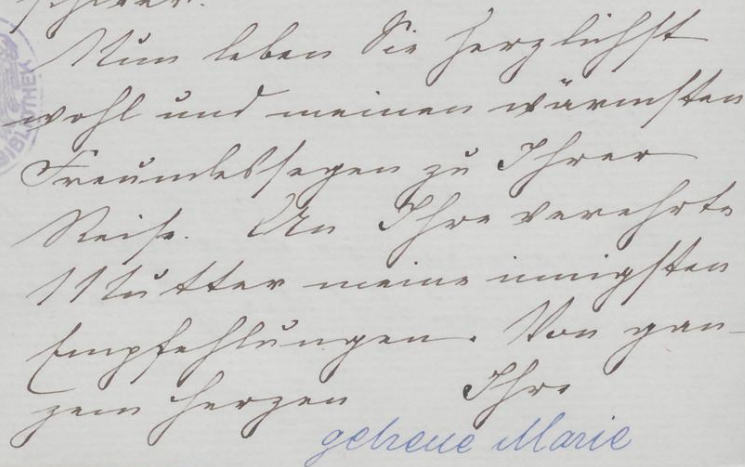 Nun leben Sie herzlichst
wohl und meinen wärmsten
Freundessegen zu Ihrer
Reise. An Ihre verehrte
Mutter meine innigsten
Empfehlungen. Von gan-
zem Herzen Ihre
getreue Marie